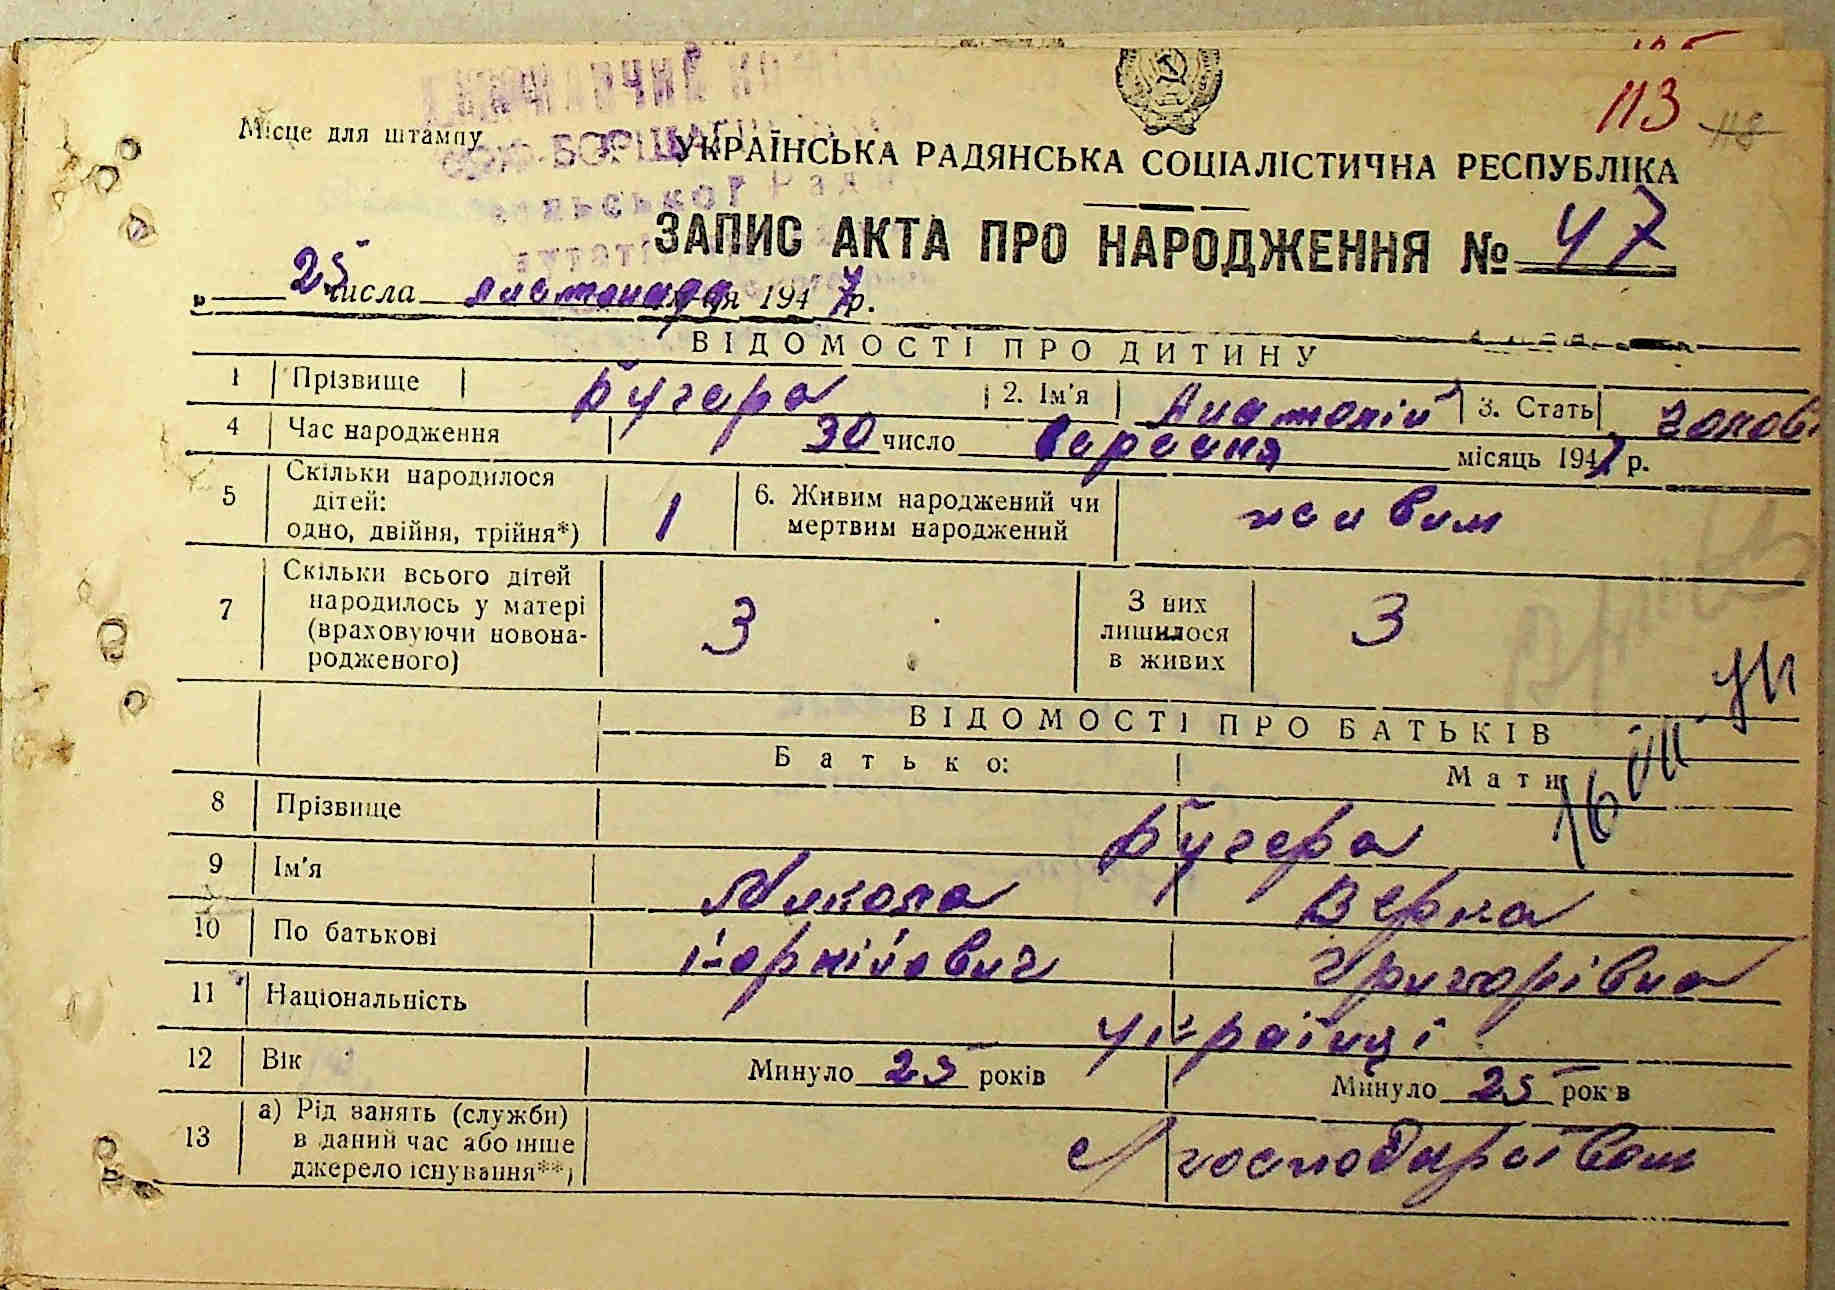 113 118
Місце для штампу
СОФ. БОРЩАГ
УКРАЇНСЬКА РАДЯНСЬКА СОЦІАЛІСТИЧНА РЕСПУБЛІКА
сільської Рад
ЗАПИС АКТА ПРО НАРОДЖЕННЯ № 47
„ 25 числа листопада м-ця 1947 р.
ВІДОМОСТІ ПРО ДИТИНУ
1 Прізвище Бугера 2. Ім'я Анатолій 3. Стать чолові
4 Час народження 30 число вересня місяць 1947 р.
5 Скільки народилося
дітей:
одно, двійня, трійня*) 1 6. Живим народжений чи
мертвим народжений живим
7 Скільки всього дітей
народилось у матері
(враховуючи новона-
родженого) 3 З них
лишилося
в живих 3
ВІДОМОСТІ ПРО БАТЬКІВ
Батько: Мати
8 Прізвище Бугера
9 Ім'я Микола Верна
10 По батькові Корнійович Григорівна
11 Національність Українці
12 Вік Минуло 25 років Минуло 25 років
13 а) Рід занять (служби)
в даний час або інше
джерело існування**) с/господарством